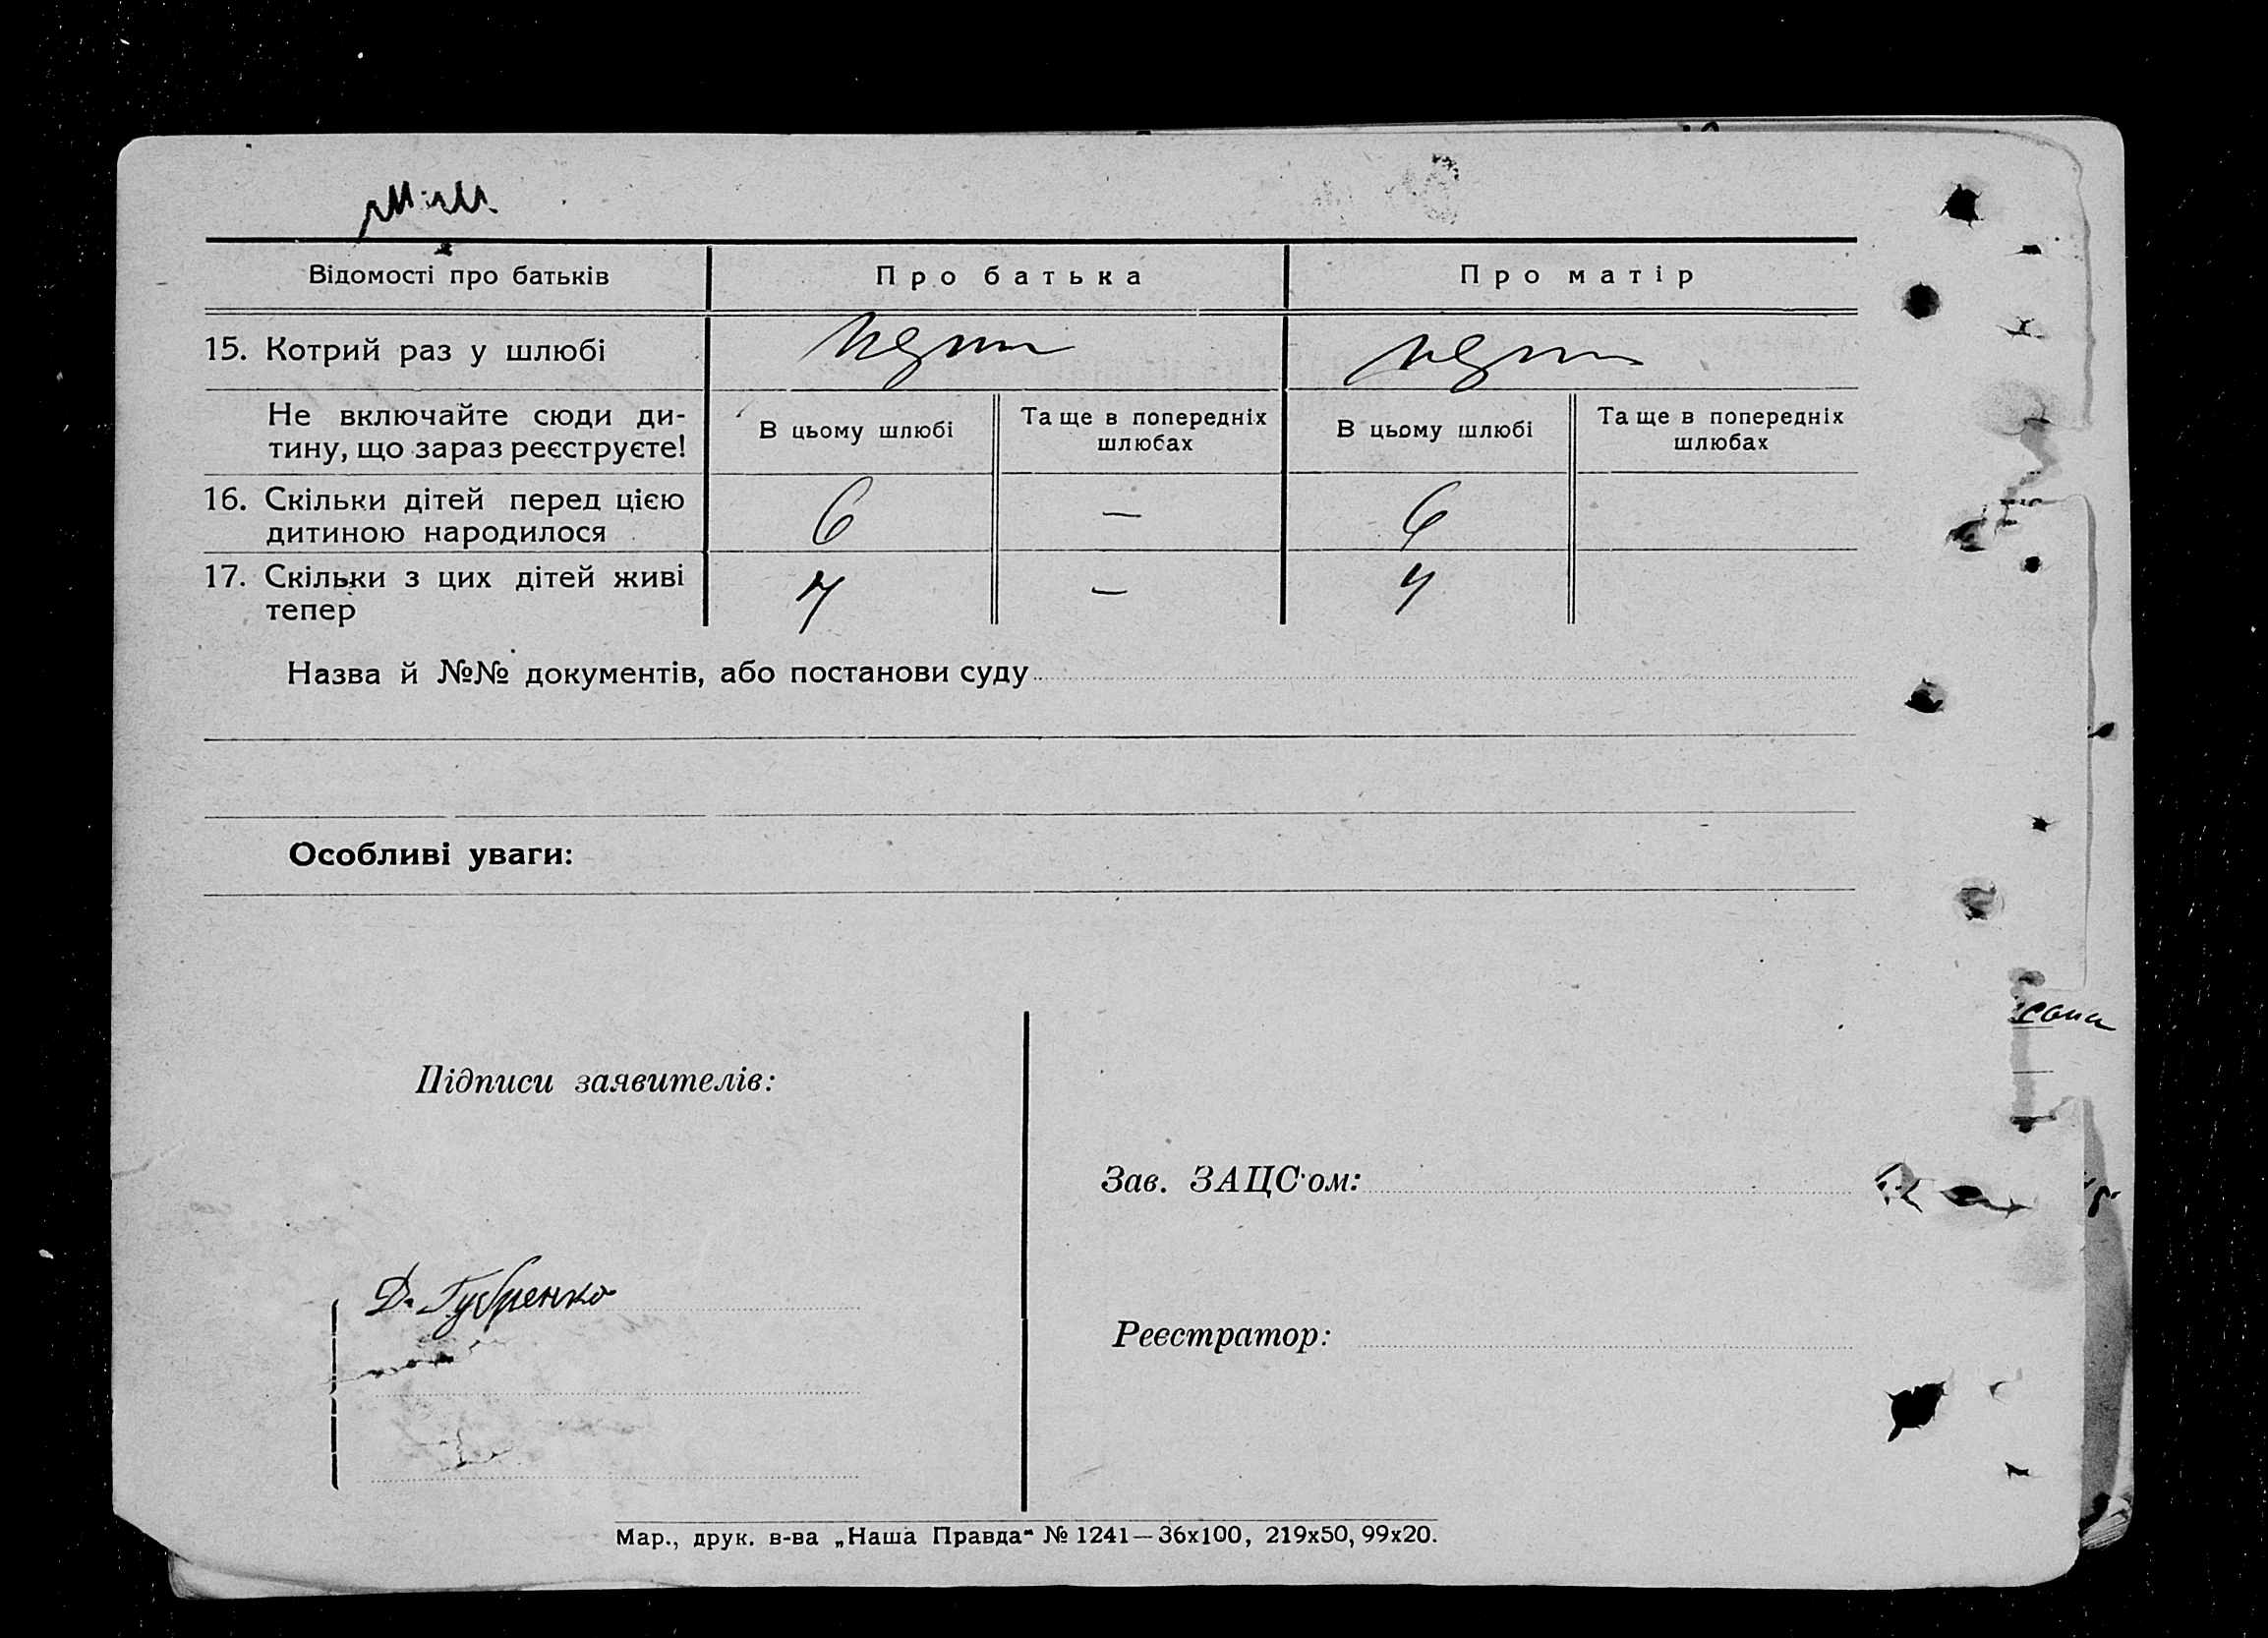 Відомості про батьків
Про батька
Про матір
15. Котрий раз у шлюбі
перш
перш
Не включайте сюди ди-
тину, що зараз реєструєте!
В цьому шлюбі
Та ще в попередніх
шлюбах
В цьому шлюбі
Та ще в попередніх
шлюбах
16. Скільки дітей перед цією
дитиною народилося
6
—
6
17. Скільки з цих дітей живі
тепер
4
—
4
Назва й №№ документів, або постанови суду
Особливі уваги:
Підписи заявителів:
Зав. ЗАЦС'ом:
Д. Губренко
Реєстратор:
Мар., друк. в-ва „Наша Правда“ № 1241—36х100, 219х50, 99х20.